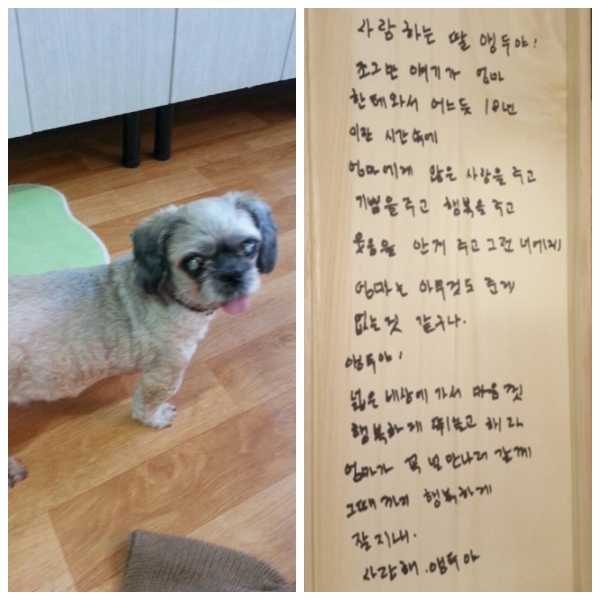 사랑하는 딸 앵두야!
조그만 애기가 엄마
한테와서 어느듯 18년
이란 시간속에
엄마에게 많은 사랑을 주고
기쁨을 주고 행복을 주고
웃음을 안겨 주고 그런 너에게
엄마는 아무것도 준게
없는것 같구나.
앵두야!
넓은 세상에 가서 마음껏
행복하게 뛰놀고 해라
엄마가 꼭 널 만나러 갈께
그때까지 행복하게
잘지내.
사랑해.앵두야